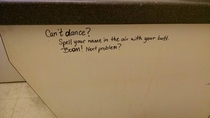 Can't dance?
Spell your name in the air with your butt.
Boom! Next problem?